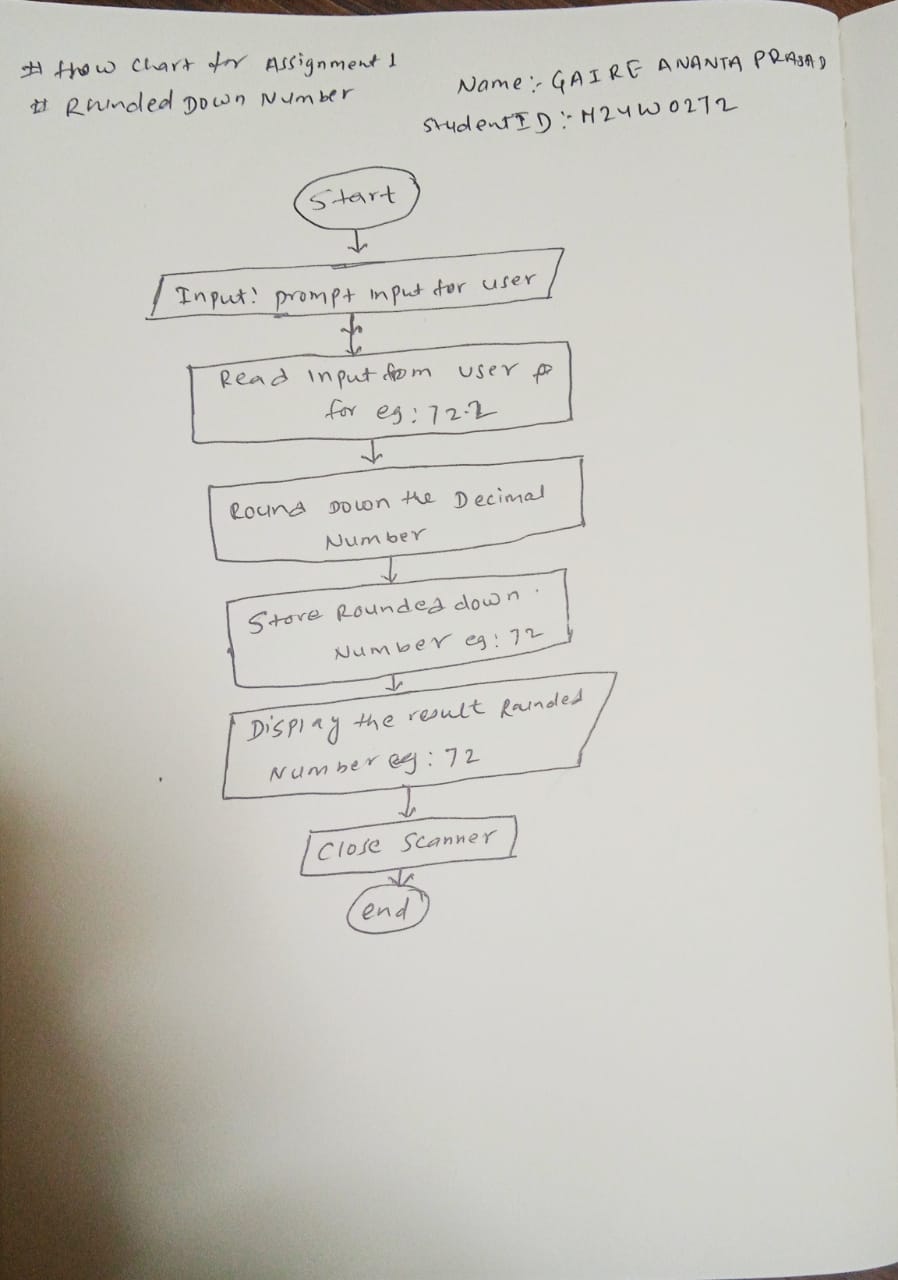 # flow chart for Assignment 1
# Rounded Down Number
Name:- GAIRE ANANTA PRASAD
StudentID:- M24W0272
Start
Input: prompt input for user
Read input from user
for eg: 72.2
Round Down the Decimal
Number
Store Rounded down
Number eg: 72
Display the result Rounded
Number eg: 72
Close Scanner
end